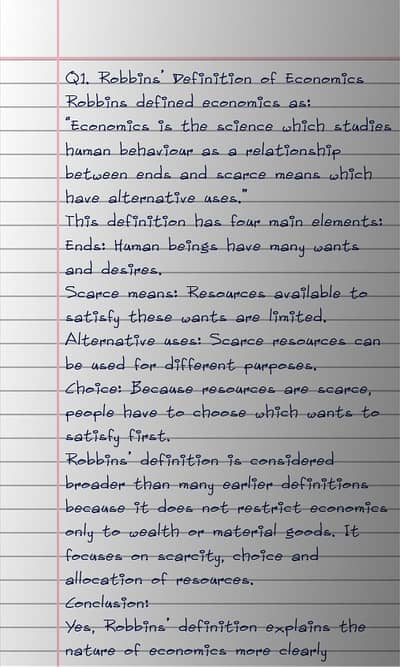 Q1. Robbins' Definition of Economics
Robbins defined economics as:
"Economics is the science which studies
human behaviour as a relationship
between ends and scarce means which
have alternative uses."
This definition has four main elements:
Ends: Human beings have many wants
and desires.
Scarce means: Resources available to
satisfy these wants are limited.
Alternative uses: Scarce resources can
be used for different purposes.
Choice: Because resources are scarce,
people have to choose which wants to
satisfy first.
Robbins' definition is considered
broader than many earlier definitions
because it does not restrict economics
only to wealth or material goods. It
focuses on scarcity, choice and
allocation of resources.
Conclusion:
Yes, Robbins' definition explains the
nature of economics more clearly